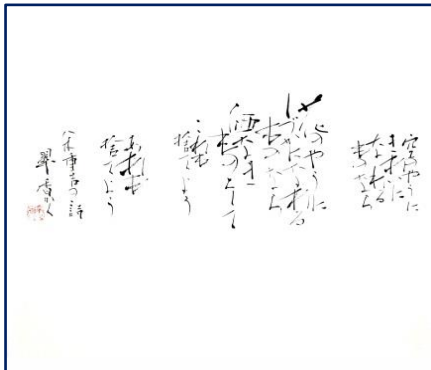 空のやうに
きれいに
なれる
ものなら
花のやうに
しづかになれる
ものなら
価なき
ものとして
これも
捨てよう
あれも
捨てよう
八木重吉の詩
翠香かく